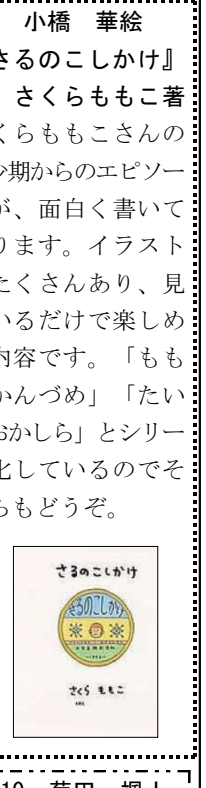 小橋　華絵
さるのこしかけ』
さくらももこ著
くらももこさんの
少期からのエピソー
が、面白く書いて
ります。イラスト
たくさんあり、見
いるだけで楽しめ
内容です。「もも
かんづめ」「たい
おかしら」とシリー
化しているのでそ
らもどうぞ。
さるのこしかけ
さるのこしかけ
さくら ももこ